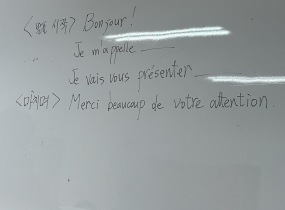 <발표 시작> Bonjour!
Je m'appelle ____
Je vais vous présenter ____
<마치며> Merci beaucoup de votre attention.